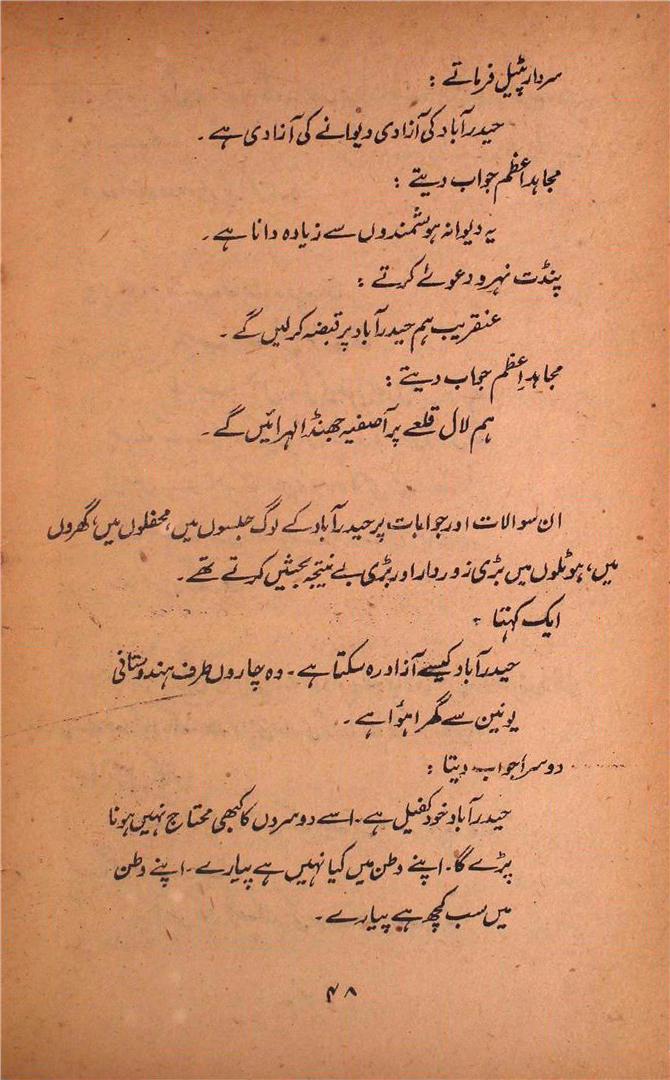 سردار پٹیل فرماتے :
حیدرآباد کی آزادی دیوانے کی آزادی ہے ۔
مجاہد اعظم جواب دیتے :
یہ دیوانہ ہوشمندوں سے زیادہ دانا ہے ۔
پنڈت نہرو دعوےٰ کرتے :
عنقریب ہم حیدرآباد پر قبضہ کرلیں گے ۔
مجاہدِ اعظم جواب دیتے :
ہم لال قلعے پر آصفیہ جھنڈا لہرائیں گے ۔
ان سوالات اور جوابات پر حیدرآباد کے لوگ جلسوں میں، محفلوں میں، گھروں
میں، ہوٹلوں میں بڑی زوردار اور بڑی بے نتیجہ بحثیں کرتے تھے ۔
ایک کہتا :
حیدرآباد کیسے آزاد رہ سکتا ہے ۔ وہ چاروں طرف ہندوستانی
یونین سے گھرا ہؤا ہے ۔
دوسرا جواب دیتا :
حیدرآباد خود کفیل ہے ۔ اسے دوسروں کا کبھی محتاج نہیں ہونا
پڑے گا ۔ اپنے وطن میں کیا نہیں ہے پیارے ۔ اپنے وطن
میں سب کچھ ہے پیارے ۔
۴۸